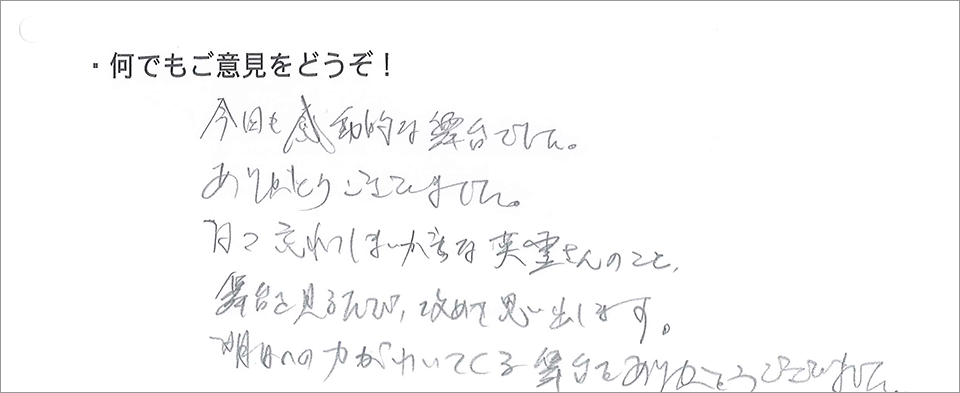 ・何でもご意見をどうぞ！
今回も感動的な舞台でした。
ありがとうございました。
日々忘れてしまいがちな英霊さんのこと、
舞台を見るたび、改めて思い出します。
明日への力がわいてくる舞台をありがとうございました。